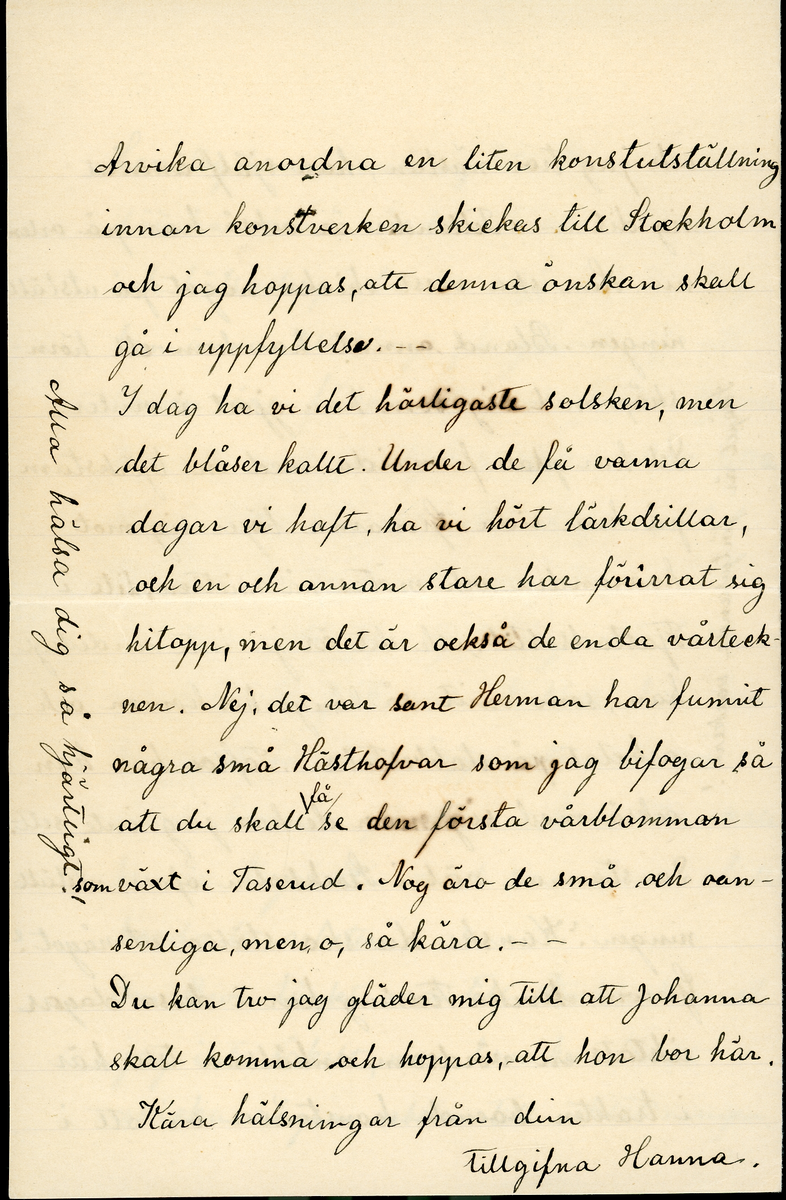 Arvika anordna en liten konstutställning
innan konstverken skickas till Stockholm
och jag hoppas, att denna önskan skall
gå i uppfyllelse. - -
I dag ha vi det härligaste solsken, men
det blåser kallt. Under de få varma
dagar vi haft, ha vi hört lärkdrillar,
och en och annan stare har förirrat sig
hitopp, men det är också de enda vårteck-
nen. Nej, det var sant Herman har funnit
några små Hästhofvar som jag bifogar så
att du skall få se den första vårblomman
som växt i Taserud. Nog äro de små och oan-
senliga, men, o, så kära. - -
Du kan tro jag gläder mig till att Johanna
skall komma och hoppas, att hon bor här.
Kära hälsningar från din
tillgifna Hanna.
Alla hälsa dig så hjärtligt!